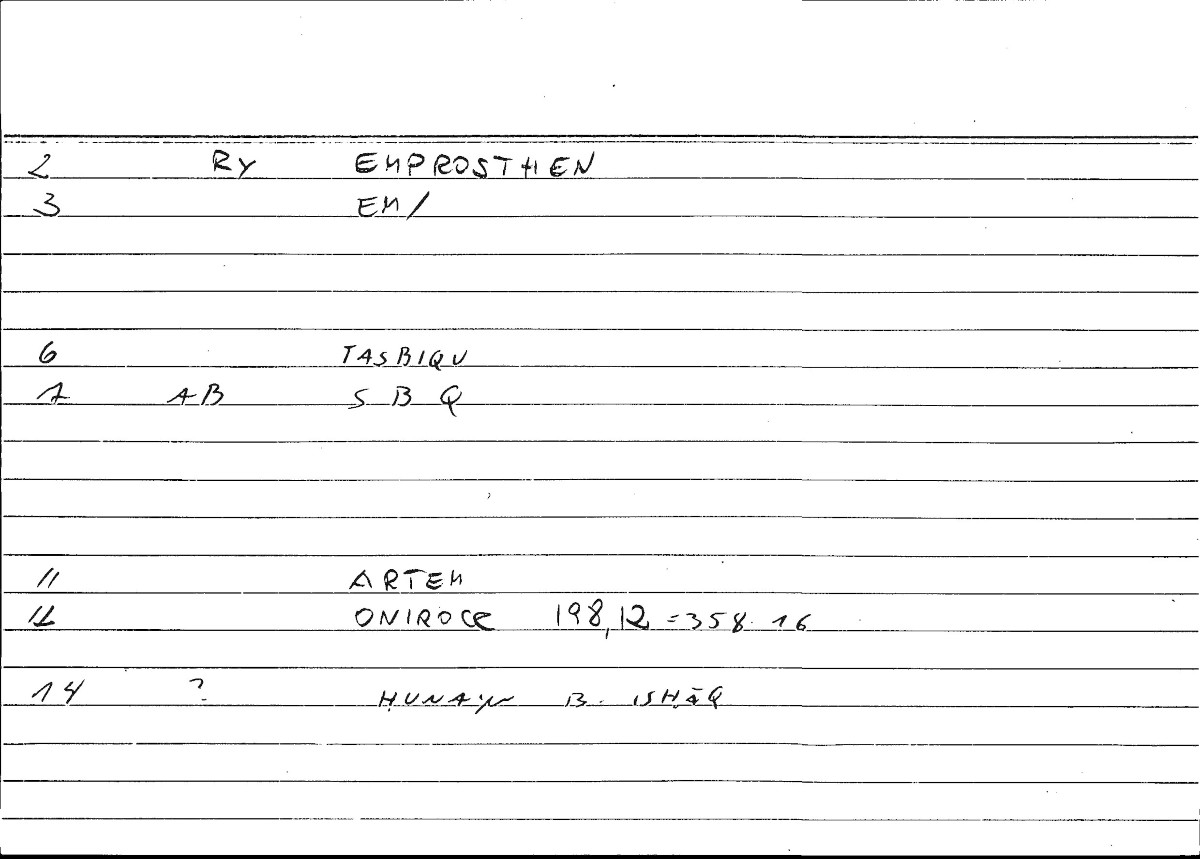 2 RY EMPROSTHEN
3 EM/
6 TASBIQU
7 AB S B Q
11 ARTEM
12 ONIROCR 198,12 = 358.16
14 ? ḤUNAYN B. ISḤĀQ